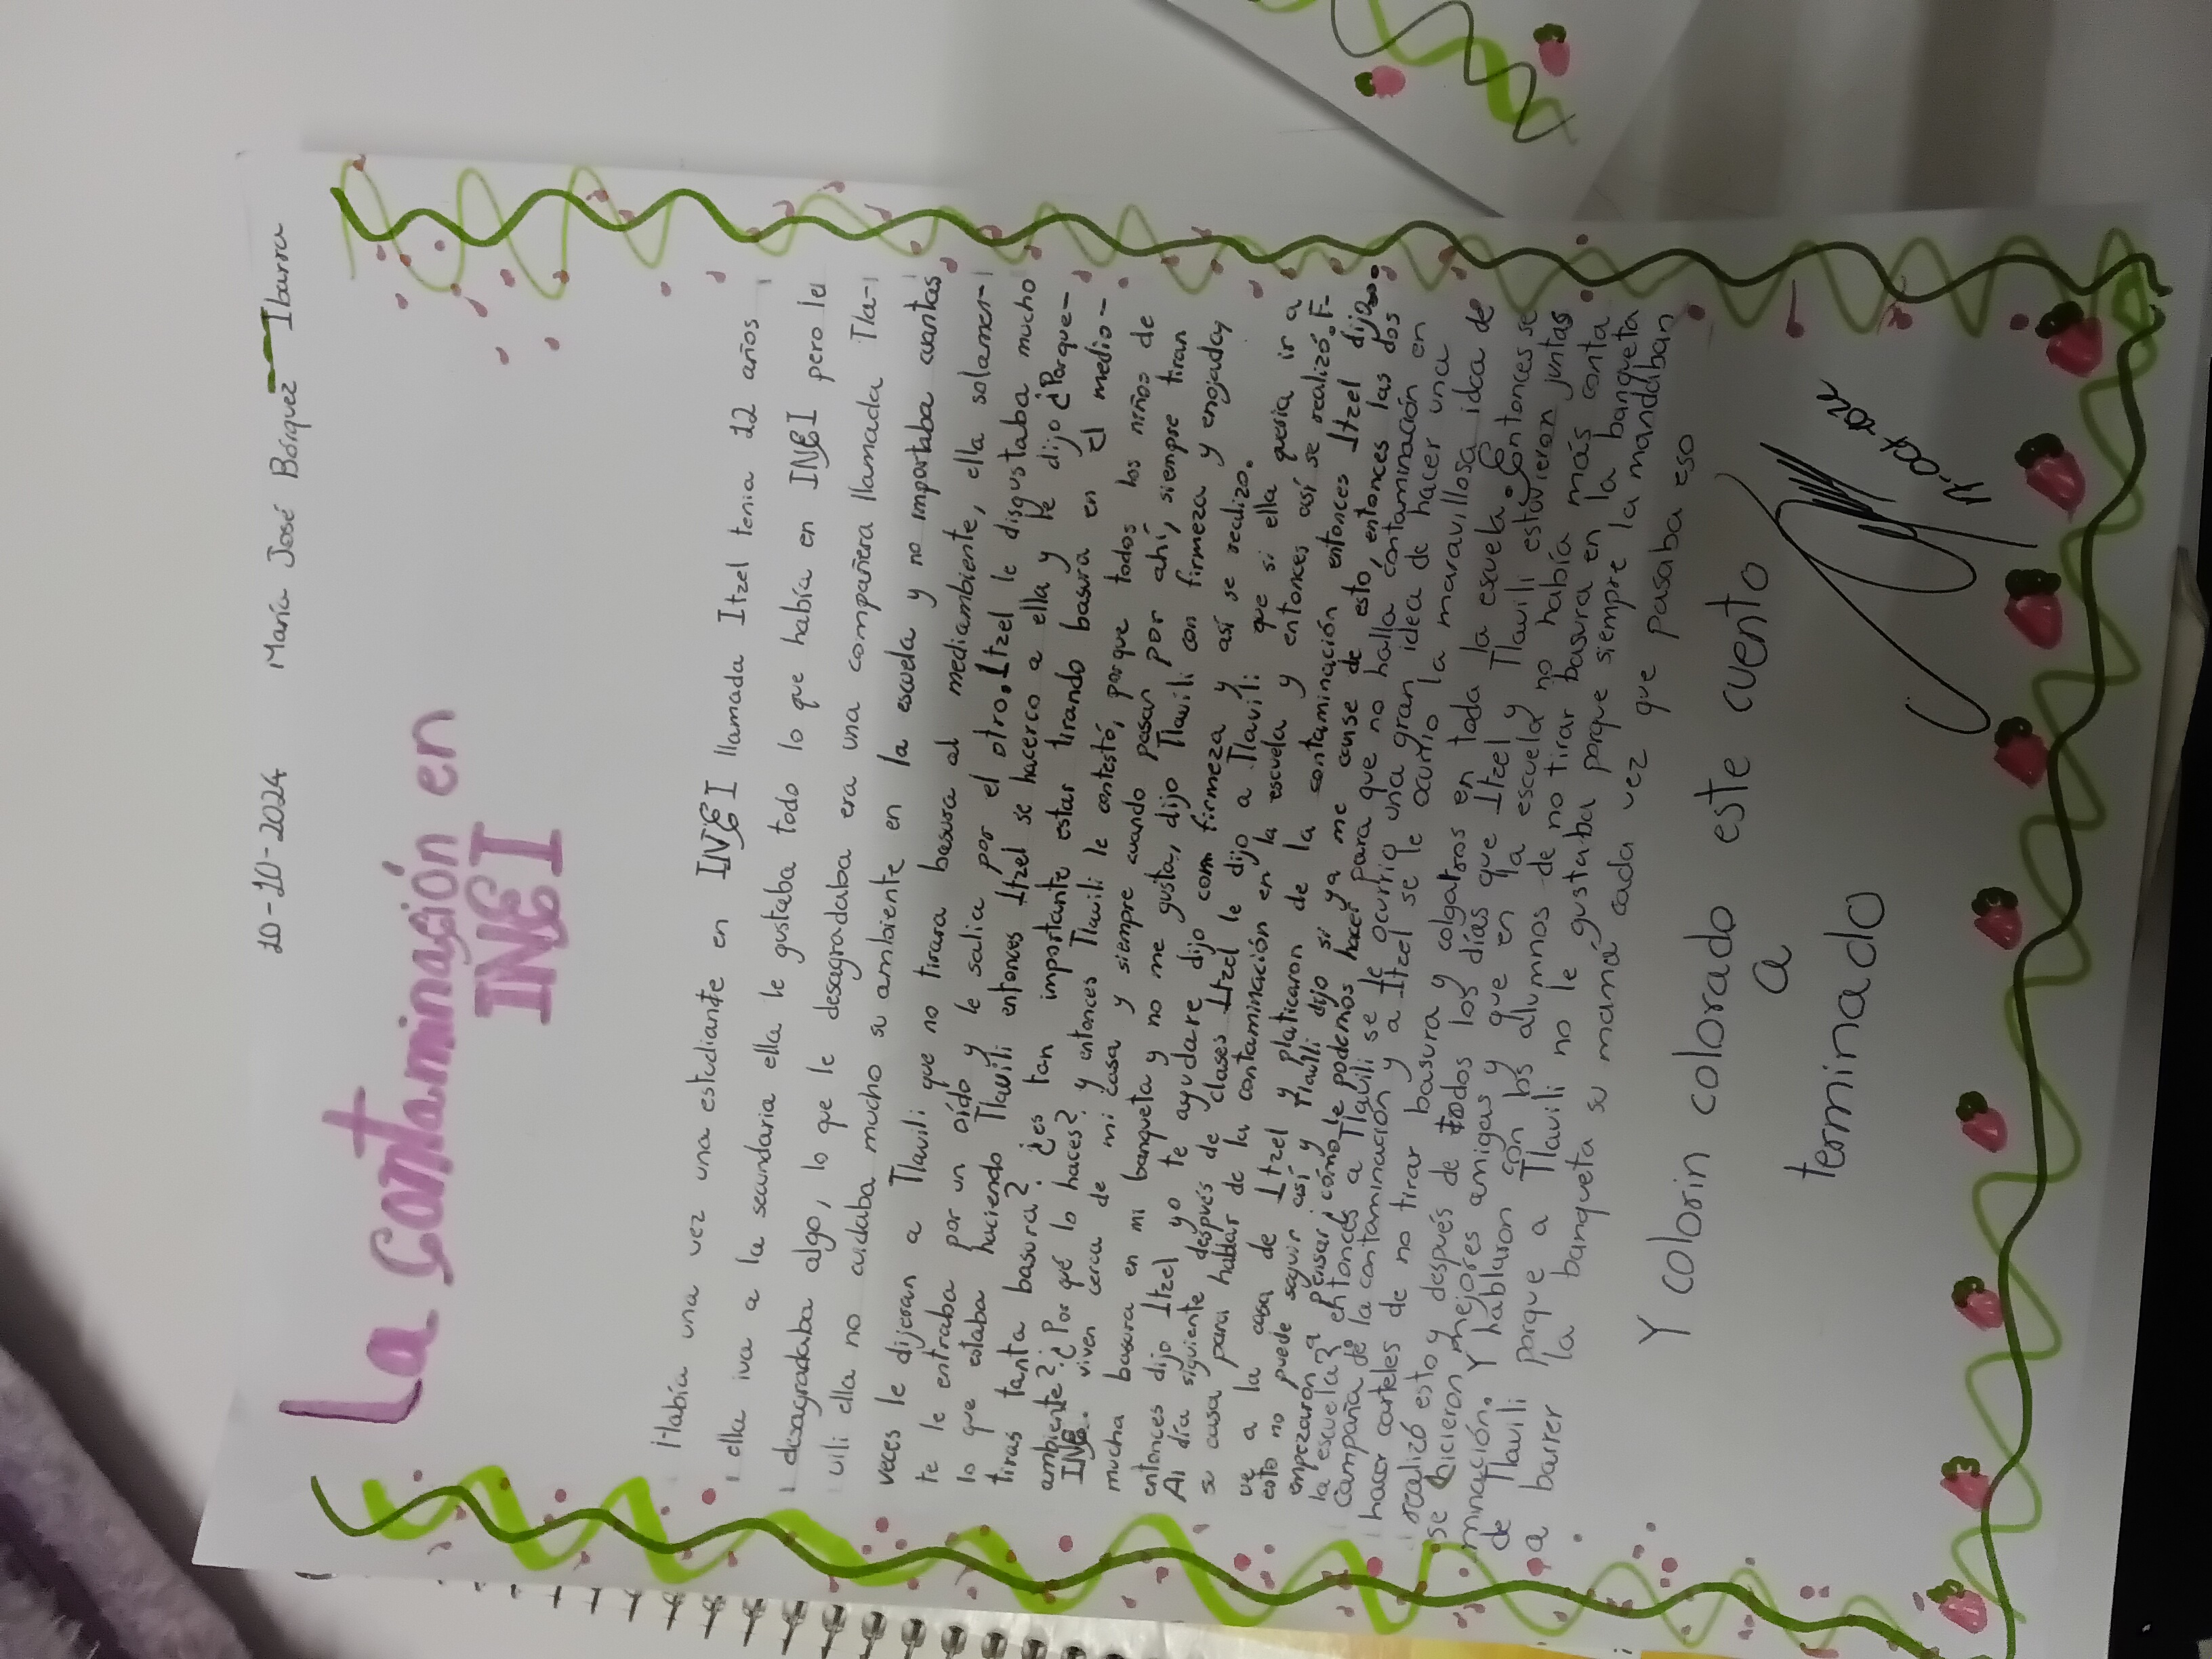 10-10-2024 María José Bórquez Ibarra
La Contaminación en
INEI
Había una vez una estudiante en INEI llamada Itzel tenia 12 años
ella iva a la secundaria ella le gustaba todo lo que había en INEI pero le
desagradaba algo, lo que le desagradaba era una compañera llamada Tla-
uili ella no cuidaba mucho su ambiente en la escuela y no importaba cuantas
veces le dijeran a Tlauili que no tirara basura al mediambiente, ella solamen-
te le entraba por un oído y le salia por el otro. Itzel le disgustaba mucho
lo que estaba haciendo Tlauili entonces Itzel se hacerco a ella y le dijo ¿Porque-
tiras tanta basura? ¿es tan importante estar tirando basura en el medio-
ambiente? ¿Por qué lo haces? y entonces Tlauili le contestó, porque todos los niños de
INEI. viven cerca de mi casa y siempre cuando pasan por ahí, siempre tiran
mucha basura en mi banqueta y no me gusta, dijo Tlauili con firmeza y enojada,
entonces dijo Itzel yo te ayudare dijo com firmeza y así se realizo.
Al día siguiente después de clases Itzel le dijo a Tlavili: que si ella quería ir a
su casa para hablar de la contaminación en la escuela y entonces así se realizó. F-
ue a la casa de Itzel y platicaron de la contaminación entonces Itzel dijo
esto no puede seguir así y Tlauili dijo si ya me canse de esto, entonces las dos
empezarón a pensar ¿cómo le podemos hacer para que no halla contaminación en
la escuela? entonces a Tlauili se le ocurrio una gran idea de hacer una
campaña de la contaminación y a Itzel se le ocurrio la maravillosa idea de
hacer carteles de no tirar basura y colgarlos en toda la escuela. Entonces se
realizó esto y después de todos los días que Itzel y Tlauili estuvieron juntas
se hicieron mejores amigas y que en la escuela no había más conta
minación. Y hablaron con los alumnos de no tirar basura en la banqueta
de Tlauili porque a Tlauili no le gustaba porque siempre la mandaban
a barrer la banqueta su mamá cada vez que pasaba eso
Y colorin colorado este cuento
a
terminado